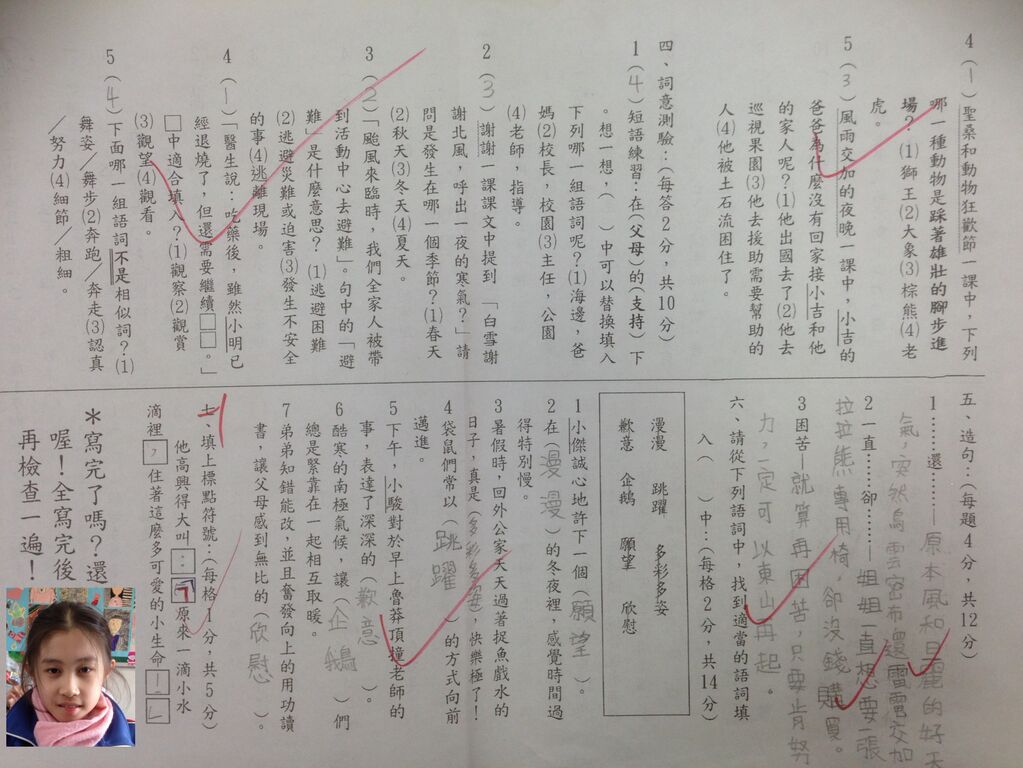 4(1)聖桑和動物狂歡節一課中，下列
哪一種動物是踩著雄壯的腳步進
場？⑴獅王⑵大象⑶棕熊⑷老
虎。
5(3)風雨交加的夜晚一課中，小吉的
爸爸為什麼沒有回家接小吉和他
的家人呢？⑴他出國去了⑵他去
巡視果園⑶他去援助需要幫助的
人⑷他被土石流困住了。
四、詞意測驗：(每答2分，共10分)
1(4)短語練習：在(父母)的(支持)下
。想一想，( )中可以替換填入
下列哪一組語詞呢？⑴海邊，爸
媽⑵校長，校園⑶主任，公園
⑷老師，指導。
2(3)謝謝一課課文中提到「白雪謝
謝北風，呼出一夜的寒氣？」請
問是發生在哪一個季節？⑴春天
⑵秋天⑶冬天⑷夏天。
3(2)「颱風來臨時，我們全家人被帶
到活動中心去避難」。句中的「避
難」是什麼意思？ ⑴逃避困難
⑵逃避災難或迫害⑶發生不安全
的事⑷逃離現場。
4(1)「醫生說：吃藥後，雖然小明已
經退燒了，但還需要繼續□□。」
□中適合填入？⑴觀察⑵觀賞
⑶觀望⑷觀看。
5(4)下面哪一組語詞不是相似詞？⑴
舞姿／舞步⑵奔跑／奔走⑶認真
／努力⑷細節／粗細。
五、造句：(每題4分，共12分)
1……還……—原本風和日麗的好天
氣，突然烏雲密布還雷電交加
2一直……卻……—姐姐一直想要一張
拉拉熊專用椅，卻沒錢購買。
3困苦—就算再困苦，只要肯努
力，一定可以東山再起。
六、請從下列語詞中，找到適當的語詞填
入( )中：(每格2分，共14分)
漫漫 跳躍 多彩多姿
歉意 企鵝 願望 欣慰
1小傑誠心地許下一個(願望)。
2在(漫漫)的冬夜裡，感覺時間過
得特別慢。
3暑假時，回外公家天天過著捉魚戲水的
日子，真是(多彩多姿)，快樂極了！
4袋鼠們常以(跳躍)的方式向前
邁進。
5下午，小駿對於早上魯莽頂撞老師的
事，表達了深深的(歉意)。
6酷寒的南極氣候，讓(企鵝)們
總是緊靠在一起相互取暖。
7弟弟知錯能改，並且奮發向上的用功讀
書，讓父母感到無比的(欣慰)。
七、填上標點符號：(每格1分，共5分)
他高興得大叫：「原來一滴小水
滴裡，住著這麼多可愛的小生命！」
＊寫完了嗎？還
喔！全寫完後
再檢查一遍！